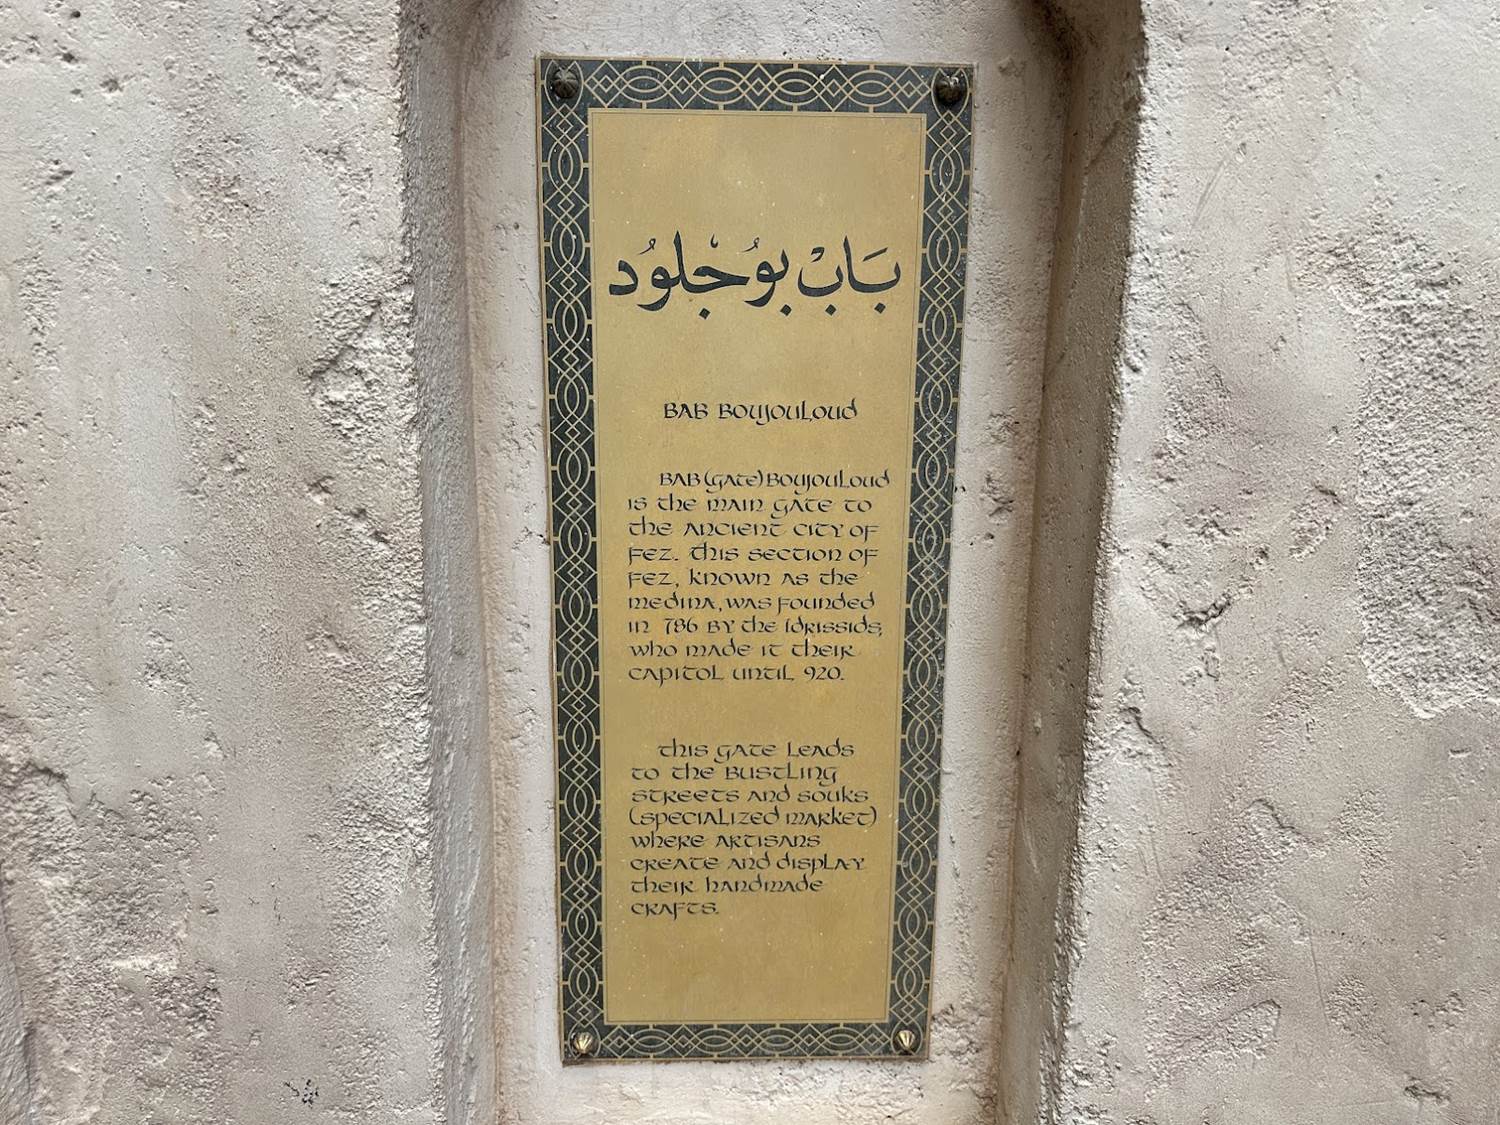 بَابْ بوُجْلوُد
BAB BOUJOULOUD
BAB (GATE) BOUJOULOUD
IS THE MAIN GATE TO
THE ANCIENT CITY OF
FEZ. THIS SECTION OF
FEZ, KNOWN AS THE
MEDINA, WAS FOUNDED
IN 786 BY THE IDRISSIDS,
WHO MADE IT THEIR
CAPITOL UNTIL 920.
THIS GATE LEADS
TO THE BUSTLING
STREETS AND SOUKS
(SPECIALIZED MARKET)
WHERE ARTISANS
CREATE AND DISPLAY
THEIR HANDMADE
CRAFTS.